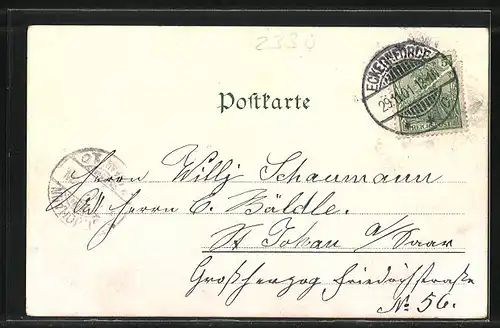 2330
Postkarte
ECKERNFÖRDE
29.11.01.
Herrn Willy Schaumann
Adr Herrn C. Bäldle.
St Johan a/Saar
Großherzog Friedrichstraße
No 56.